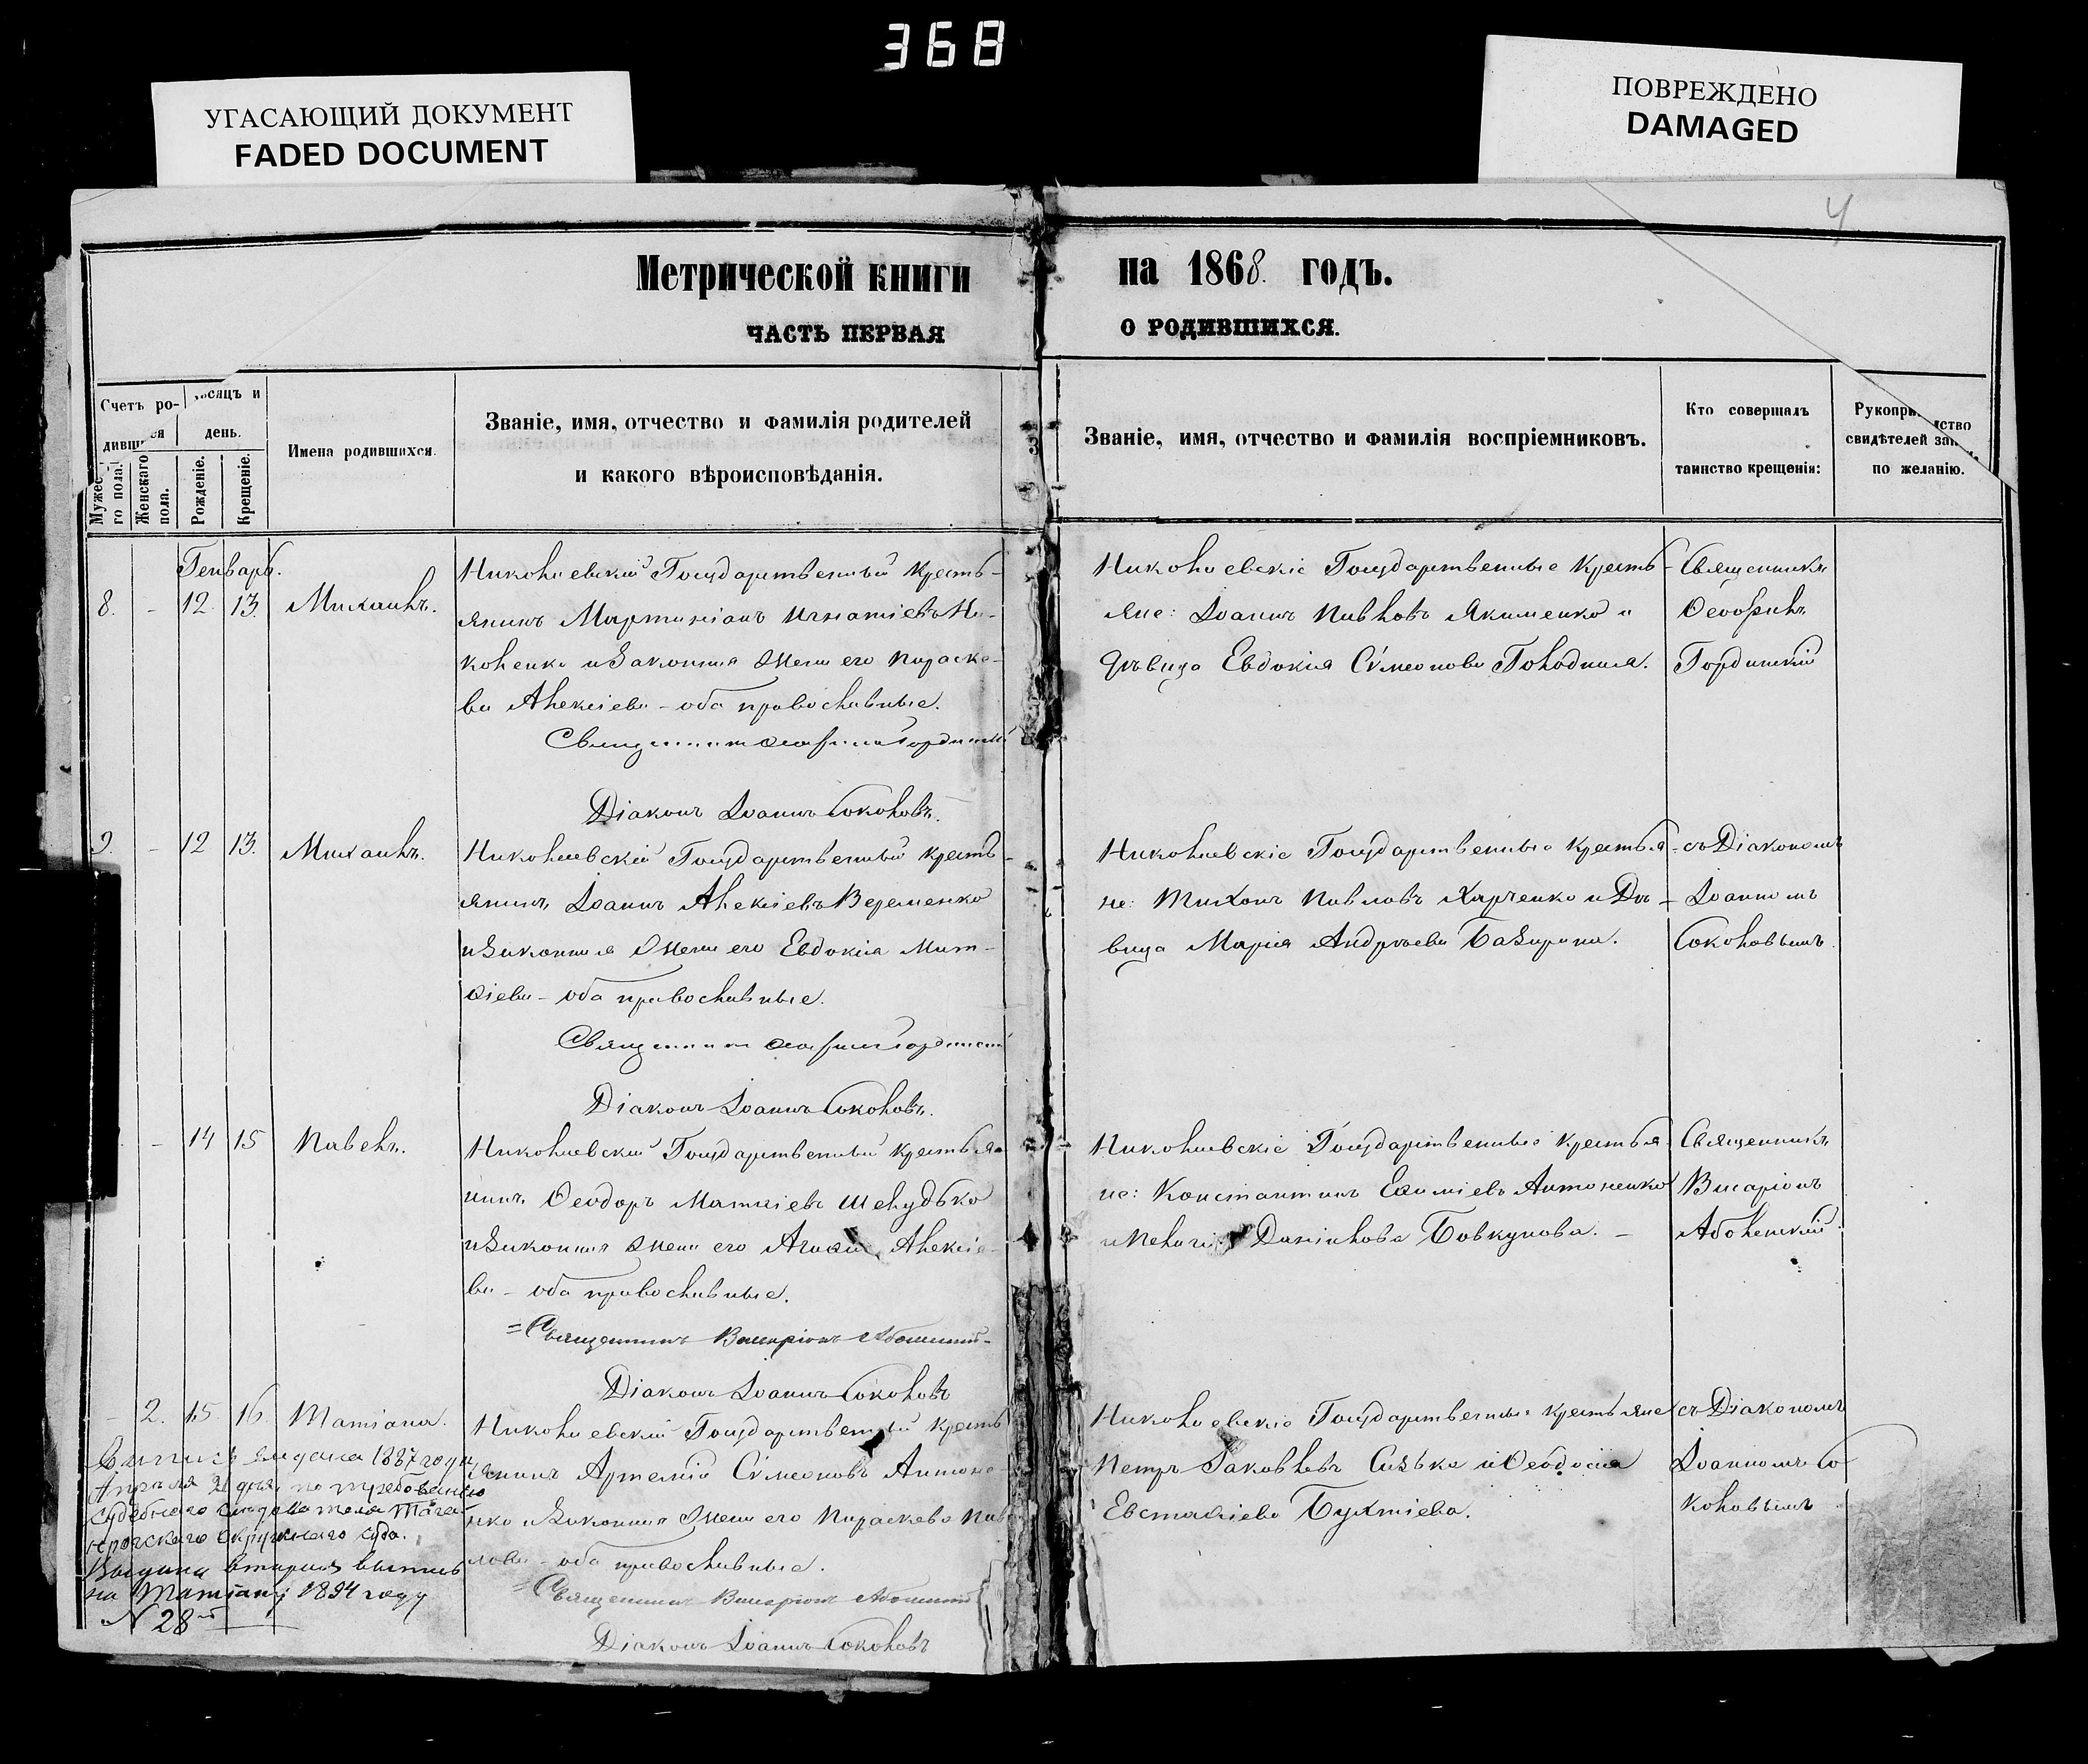 368
УГАСАЮЩИЙ ДОКУМЕНТ
FADED DOCUMENT
ПОВРЕЖДЕНО
DAMAGED
4
Метрической книги
на 1868. годъ.
ЧАСТЬ ПЕРВАЯ
О РОДИВШИХСЯ.
Счетъ ро-
день.
Мужес
го пола.
Женскаго
пола.
Рожденіе.
Крещеніе.
Имена родившихся.
Званіе, имя, отчество и фамилія родителей
и какого вѣроисповѣданія.
Званіе, имя, отчество и фамилія воспріемниковъ.
Кто совершалъ
таинство крещенія:
свидѣтелей
по желанію.
Генварь.
8. - 12. 13. Михаилъ.
Николаевскій Государственный кресть-
янинъ Мартиніанъ Игнатіевъ Ни-
коленко и законная жена его Параске-
ва Алексіева - оба православные.
Священникъ Ѳеофилъ Гординскій
Діаконъ Іоаннъ Соколовъ.
Николаевскіе Государственные кресть-
яне: Іоаннъ Павловъ Якименко и
дѣвица Евдокія Сѵмеонова Голодная.
Священникъ
Ѳеофилъ
Гординскій
9. - 12 13. Михаилъ.
Николаевскій Государственный кресть-
янинъ Іоаннъ Алексіевъ Веременко
и законная жена его Евдокія Мат-
ѳіева - оба православные.
Священникъ Ѳеофилъ Гординскій
Діаконъ Іоаннъ Соколовъ.
Николаевскіе Государственные крестья-
не: Тихонъ Павловъ Харченко и Дѣ-
вица Марія Андрѣева Базирина.
съ Діакономъ
Іоанномъ
Соколовымъ.
- 14 15 Павелъ.
Николаевскій Государственный крестья-
нинъ Ѳеодоръ Матѳіевъ Шелудько
и законная жена его Агаѳія Алексіе-
ва - оба православные.
=Священникъ Висаріонъ Аболенскій-
Діаконъ Іоаннъ Соколовъ
Николаевскіе Государственные крестья-
не: Константинъ Евѳиміевъ Антоненко
и Даніилова Бовкунова. -
Священникъ
Висаріонъ
Аболенскій.
- 2. 15. 16. Татіана.
Николаевскій Государственный кресть
янинъ Артемій Сѵмеоновъ Антоне-
нко и законная жена его Параскева Пав
лова - оба православные.
=Священникъ Висаріонъ Аболенскій
Діаконъ Іоаннъ Соколовъ
Николаевскіе Государственные крестьяне
Петръ Іаковлевъ Сизько и Ѳеодосія
Евстаѳіева Бухтіева.
съ Діакономъ
Іоанномъ Со
коловымъ
Выпись выдана 1887 года,
Апрѣля 21 дня, по требованію
судебнаго слѣдователя Таган-
рогскаго окружнаго суда.
Выдана вторая выпись
на Татіану 1894 году
N 28-й